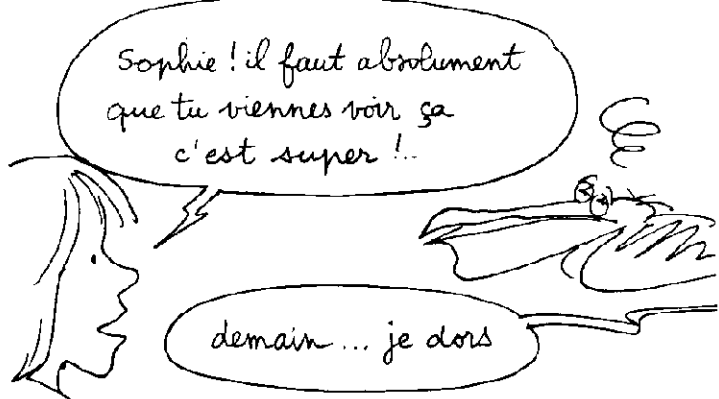 Sophie ! il faut absolument
que tu viennes voir ça
c'est super !..
demain ... je dors